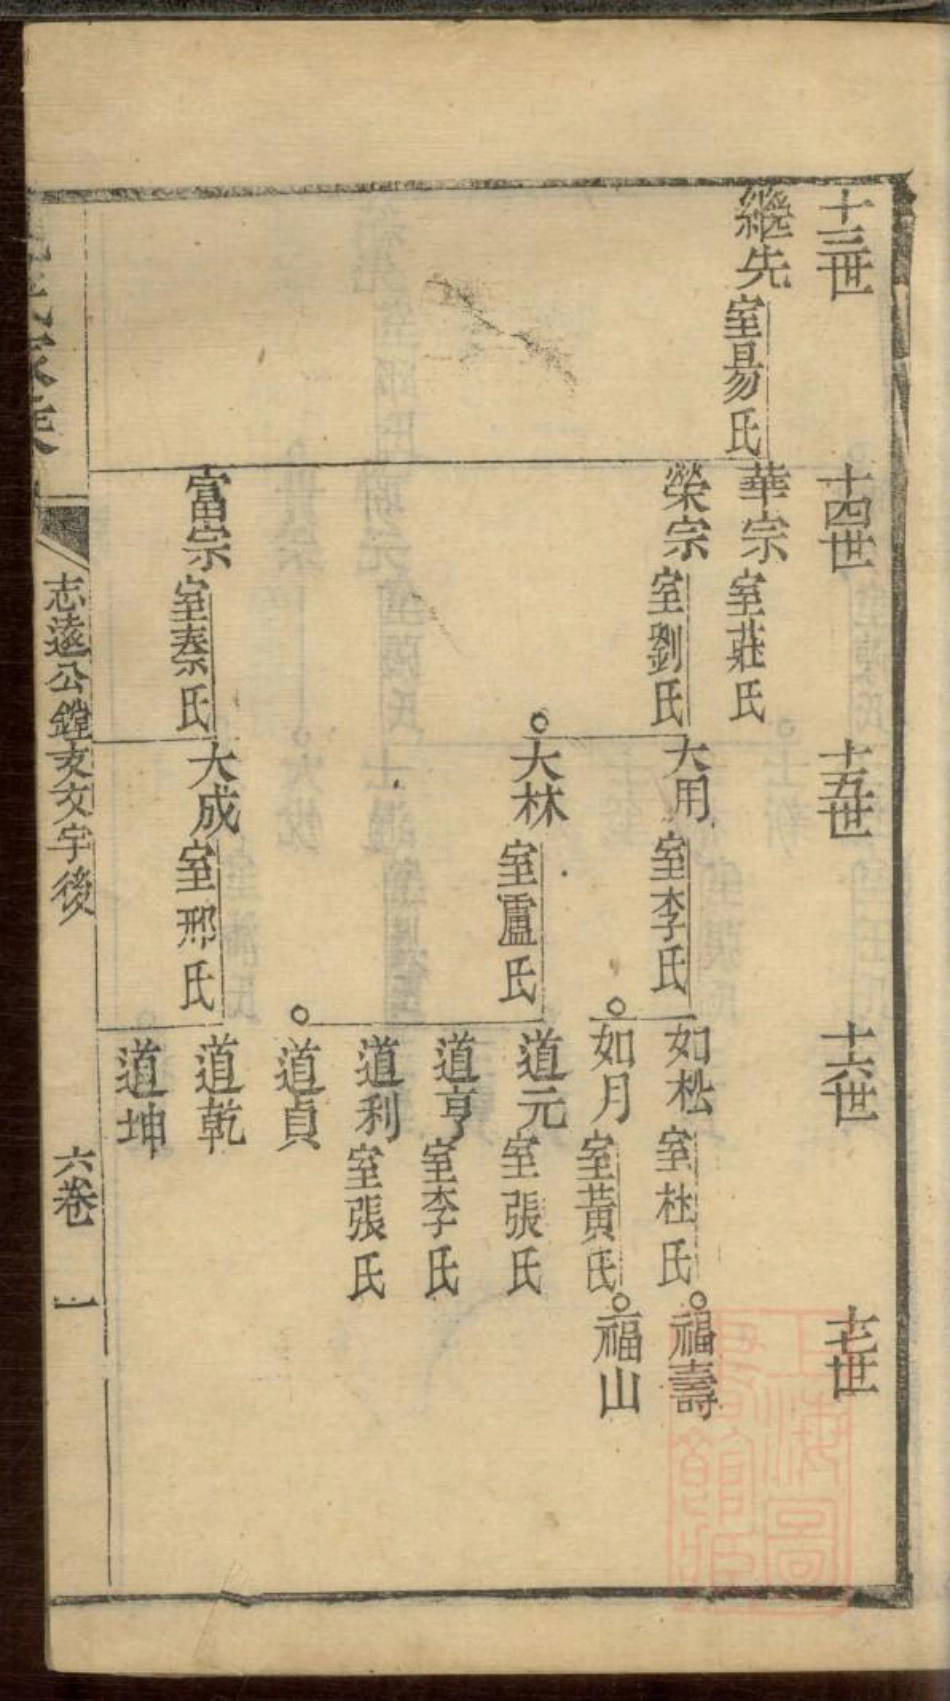 十三世
十四世
十五世
十六世
十七世
繼先 室易氏
華宗 室莊氏
榮宗 室劉氏
富宗 室秦氏
大用 室李氏
大林 室盧氏
大成 室邢氏
如松 室杜氏
如月 室黃氏
道元 室張氏
道亨 室李氏
道利 室張氏
道貞
道乾
道坤
福壽
福山
志遠公鏜支文宇後
六卷 一
上海圖書館藏